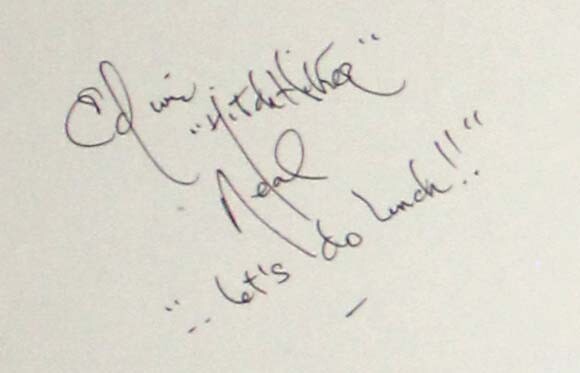 Edwin
"Hitchhiker"
Neal
"Let's do lunch!!"